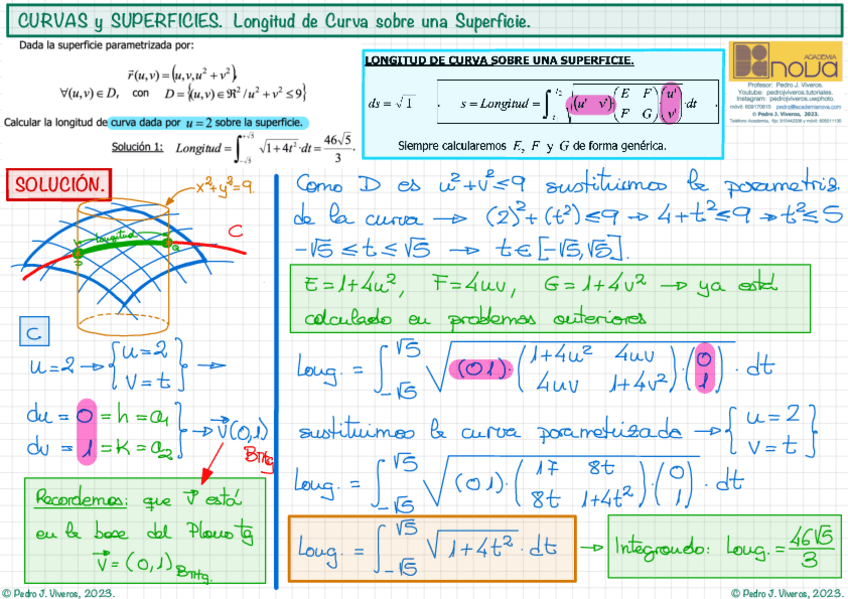 CURVAS y SUPERFICIES. Longitud de Curva sobre una Superficie.
Dada la superficie parametrizada por:
r⃗(u,v) = (u,v,u² + v²),
∀(u,v) ∈ D, con D = {(u,v) ∈ ℜ² / u² + v² ≤ 9}
Calcular la longitud de curva dada por u = 2 sobre la superficie.
Solución 1: Longitud = ∫_{-√5}^{+√5} √(1+4t²)·dt = 46√5/3.
LONGITUD DE CURVA SOBRE UNA SUPERFICIE.
ds = √1 . s = Longitud = ∫ √((u' v')(E F; F G)(u'; v')) · dt .
Siempre calcularemos E, F y G de forma genérica.
ACADEMIA
nova
Profesor: Pedro J. Viveros.
Youtube: pedrojviveros.tutoriales.
Instagram: pedrojviveros.uwphoto.
© Pedro J. Viveros, 2023.
SOLUCIÓN.
x²+y²=9.
Longitud
C
P
Q
C
u=2 → {u=2; v=t} →
du = 0 = h = a₁
dv = 1 = K = a₂
→ v⃗(0,1) BπTg
Recordemos: que v⃗ está
en la base del Plano tg
v⃗ = (0,1) BπTg.
Como D es u²+v²≤9 sustituimos la parametriz.
de la curva → (2)²+(t²)≤9 → 4+t²≤9 → t²≤5
-√5 ≤ t ≤ √5 → t∈[-√5,√5].
E=1+4u², F=4uv, G=1+4v² → ya está
calculado en problemas anteriores
Long. = ∫_{-√5}^{√5} √((0 1)·(1+4u² 4uv; 4uv 1+4v²)·(0; 1)) · dt
sustituimos la curva parametrizada → {u=2; v=t}
Long. = ∫_{-√5}^{√5} √((0 1)·(17 8t; 8t 1+4t²)·(0; 1)) · dt
Long. = ∫_{-√5}^{√5} √(1+4t²) · dt → Integrando: Long. = 46√5/3
© Pedro J. Viveros, 2023.
© Pedro J. Viveros, 2023.